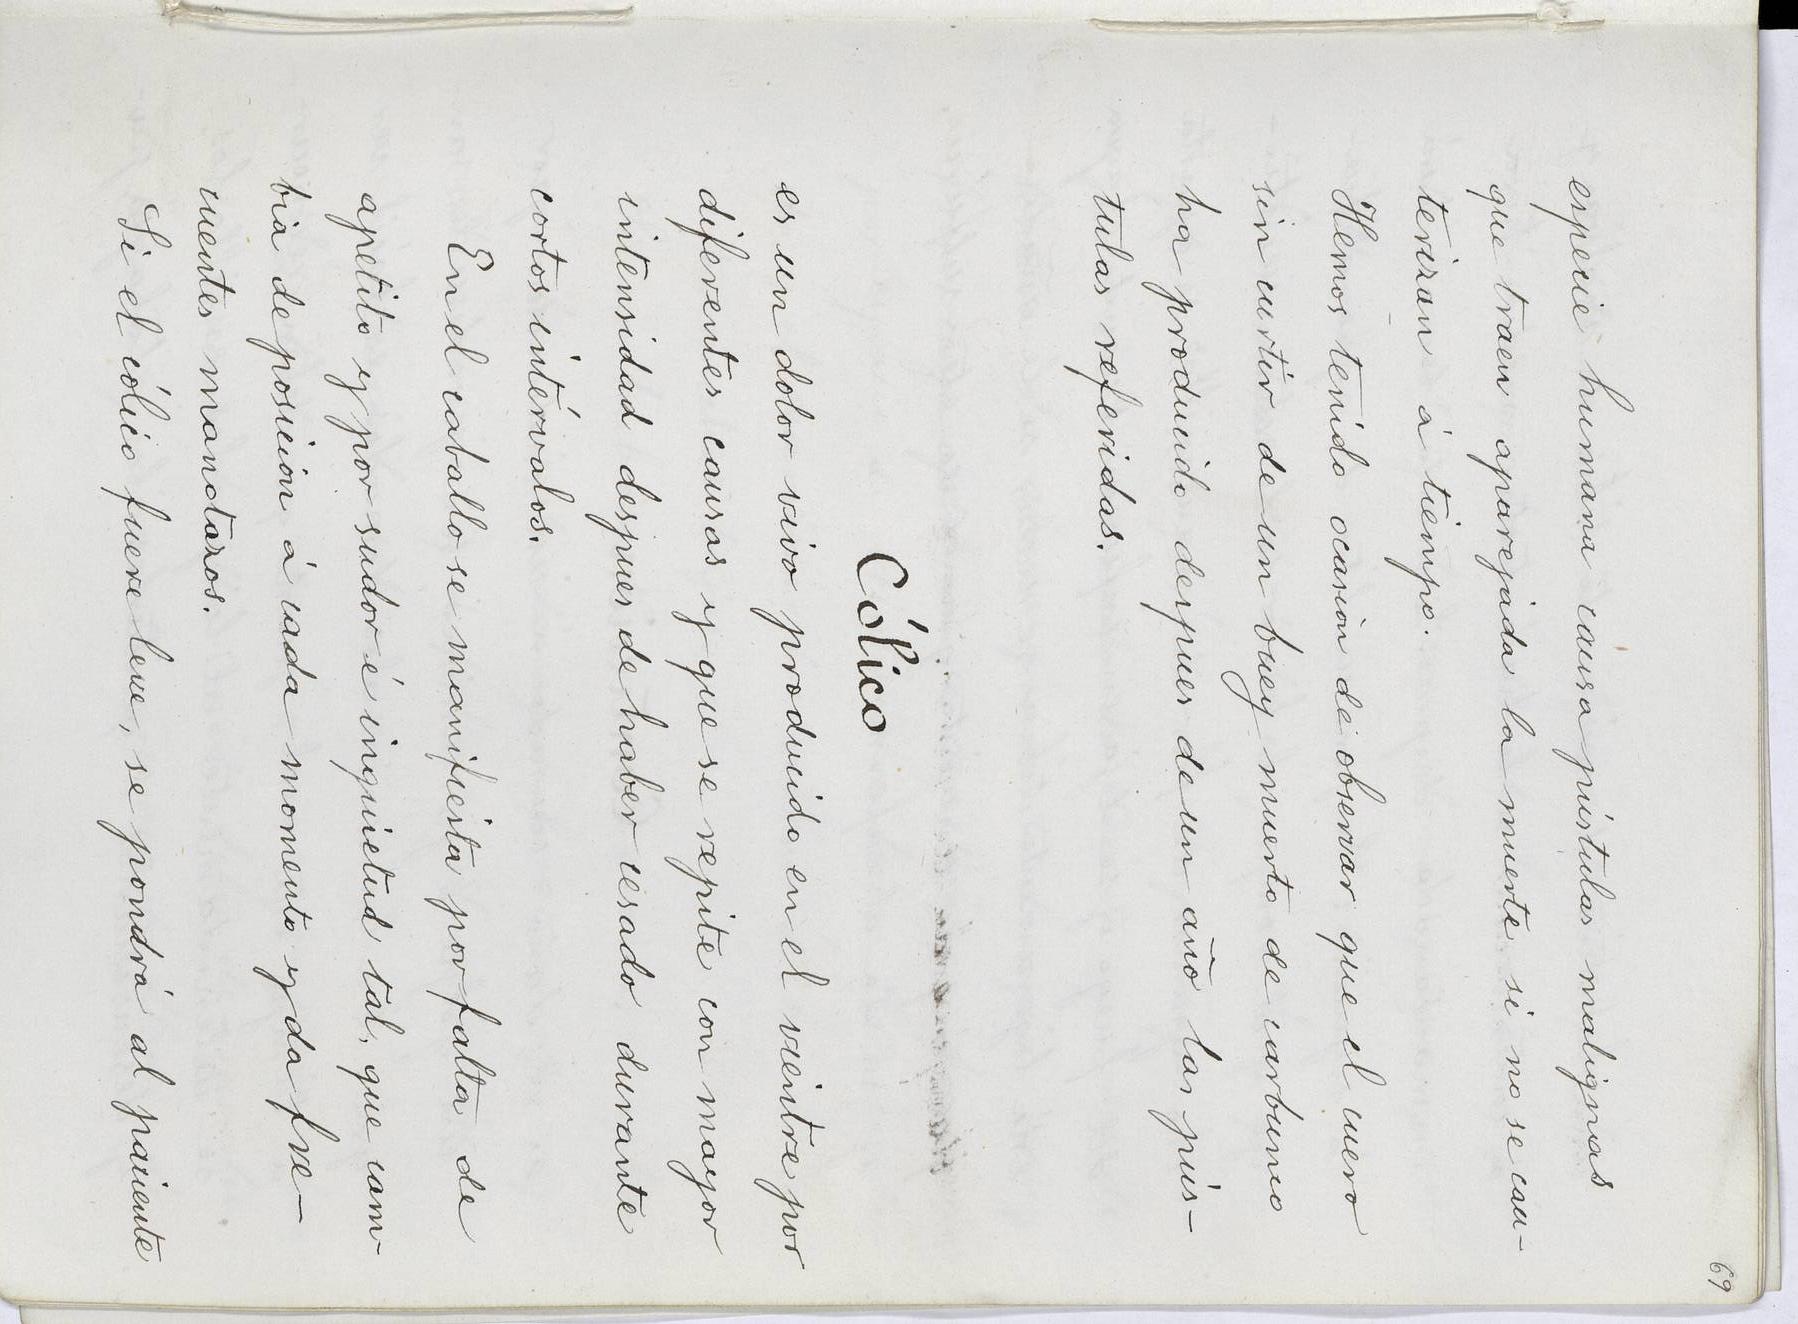 69
especie humana causa pústulas malignas
que traen aparejada la muerte si no se cau-
terizan á tiempo.
Hemos tenido ocasion de observar que el cuero
sin curtir de un buey muerto de carbunco
ha producido despues de un año las pús-
tulas referidas.
Cólico
es un dolor vivo producido en el vientre por
diferentes causas y que se repite con mayor
intensidad despues de haber cesado durante
cortos intérvalos.
En el caballo se manifiesta por falta de
apetito y por sudor é inquietud tal, que cam
bia de posicion á cada momento y da fre-
cuentes manotazos.
Si el cólico fuere leve, se pondrá al paciente